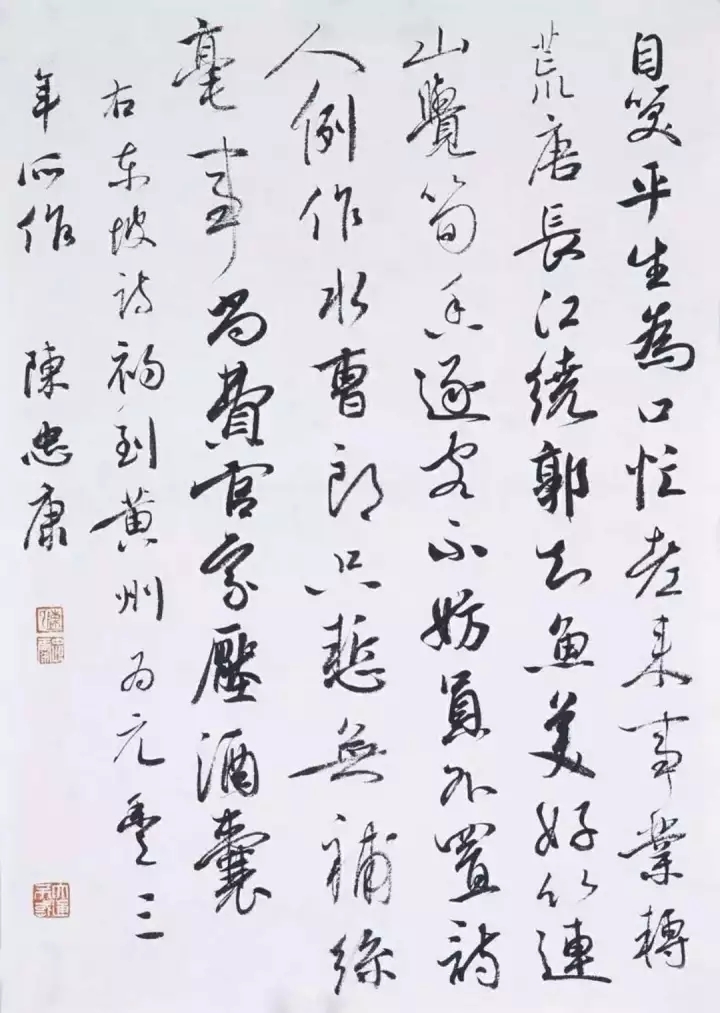 自笑平生為口忙老来事業轉
荒唐長江繞郭知魚美好竹連
山覺筍香逐客不妨員外置詩
人例作水曹郎只慙無補絲
毫事尚費官家壓酒囊
右东坡詩初到黄州为元豐三
年所作 陳忠康